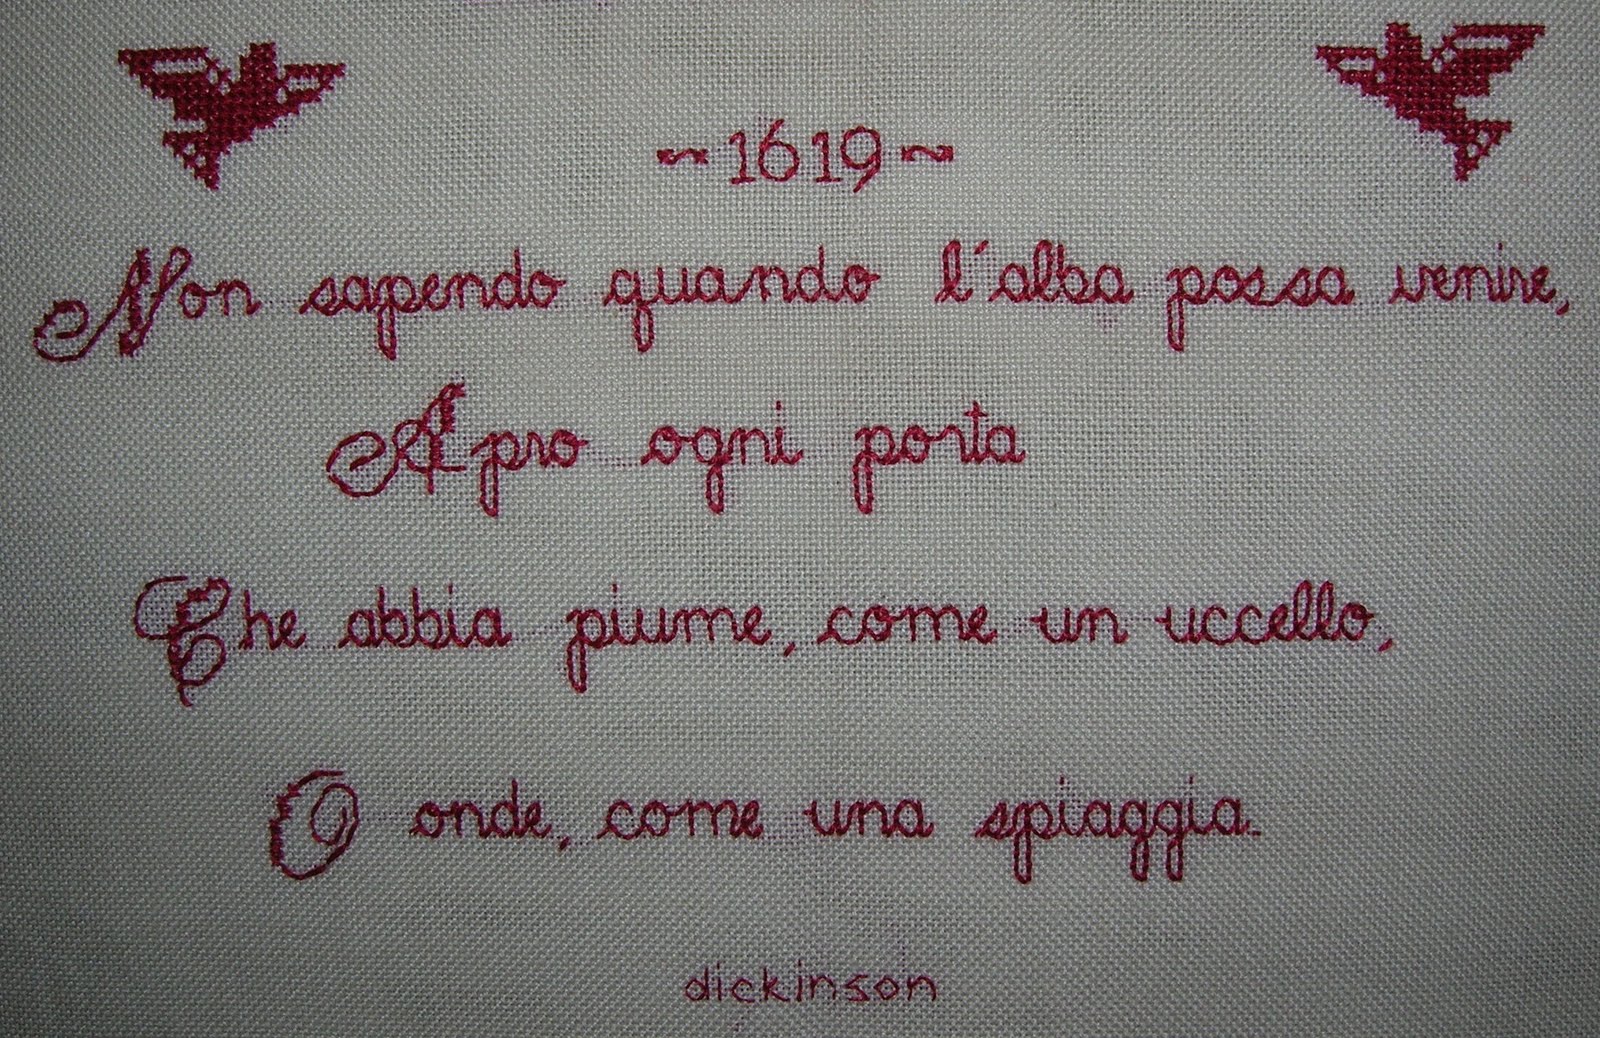 ~1619~
Non sapendo quando l'alba possa venire,
Apro ogni porta
Che abbia piume, come un uccello,
O onde, come una spiaggia.
dickinson